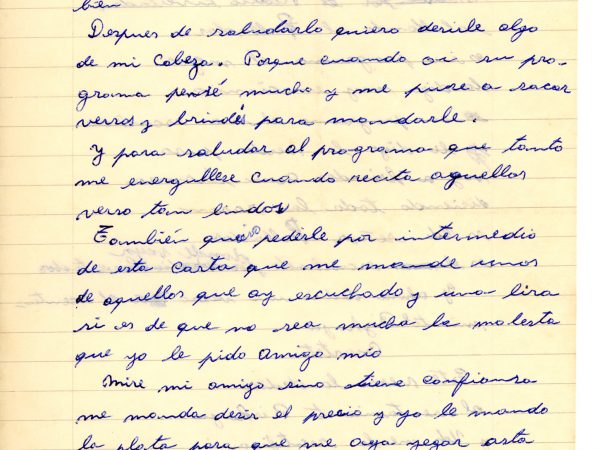 bien
Despues de saludarlo quiero desirle algo
de mi Cabeza. Porque cuando oi su pro-
grama pensé mucho y me puse a sacar
versos y brindis para mandarle.
Y para saludar al programa que tanto
me enorgullese Cuando recita aquellos
verso tan lindos
También quiero pederle por intermedio
de esta carta que me mande unos
de aquellos que ay escuchado y una lira
si es de que no sea mucha la molesta
que yo le pido amigo mio
Mire mi amigo sino tiene confiansa
me manda desir el precio y yo le mando
la plata para que me aga yegar asta